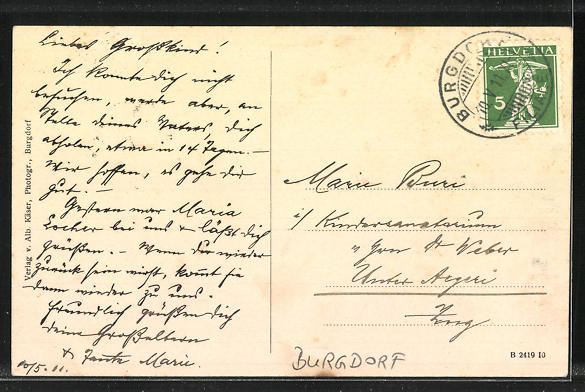 Liebes Großkind!
Ich konnte dich nicht
besuchen, werde aber, an
Stelle deines Vaters, dich
abholen, etwa in 14 Tagen. –
Wir hoffen, es gehe dir
gut. –
Gestern war Maria
Locher bei uns & läßt dich
grüßen. – Wenn du wieder
zurück sein wirst, kommt sie
dann wieder zu uns.
Freundlich grüßen dich
deine Großeltern
& Tante Marie.
10/5. 11.
Verlag v. Alb. Käser, Photogr., Burgdorf
BURGDORF
HELVETIA
5
Marie Buri
i/ Kindersanatorium
v/ Dr Weber
Unter Aegeri
Zug
BURGDORF
B 2419 10